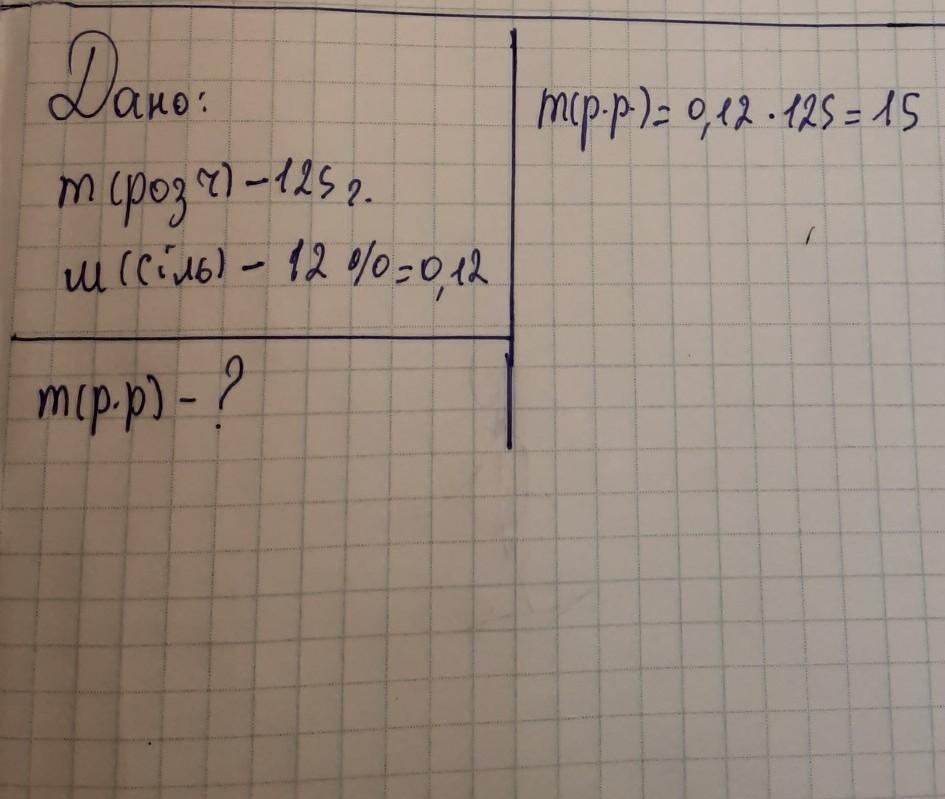 Дано:
m(розч) - 125 г.
ш(сіль) - 12 % = 0,12
m(р.р) - ?
m(р.р.) = 0,12 · 125 = 15